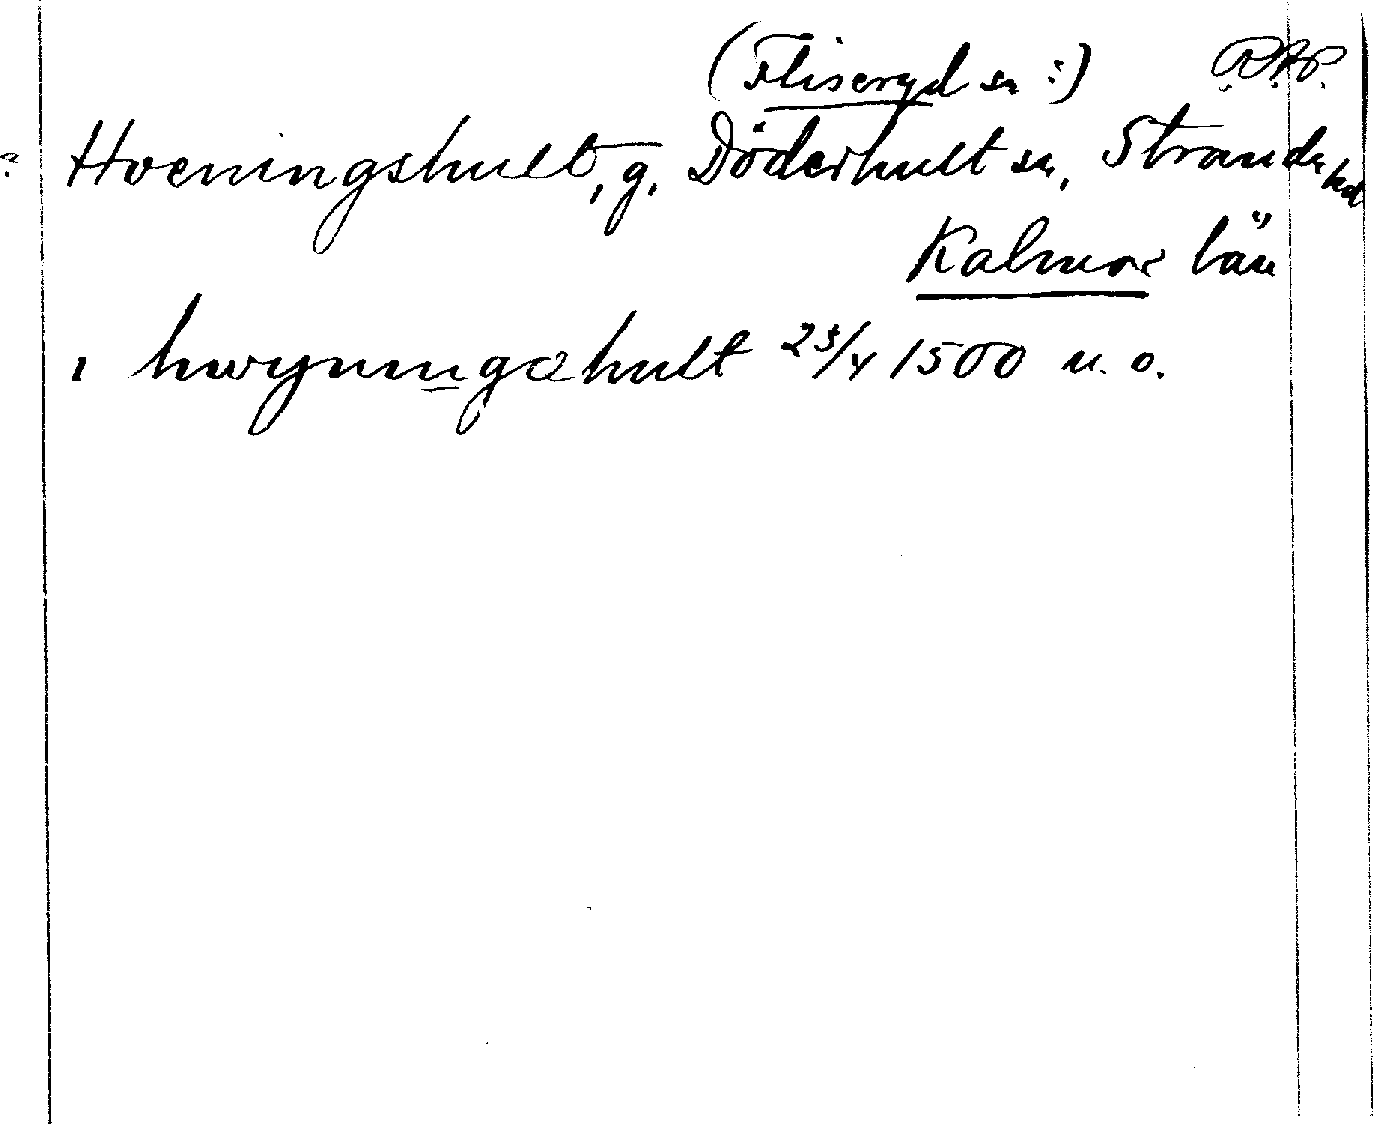 (Fliseryd sn:) R.A.P.
? Hveningshult, g. Döderhult sn, Stranda hd
Kalmar län
i hwynningahult 23/4 1500 u. o.